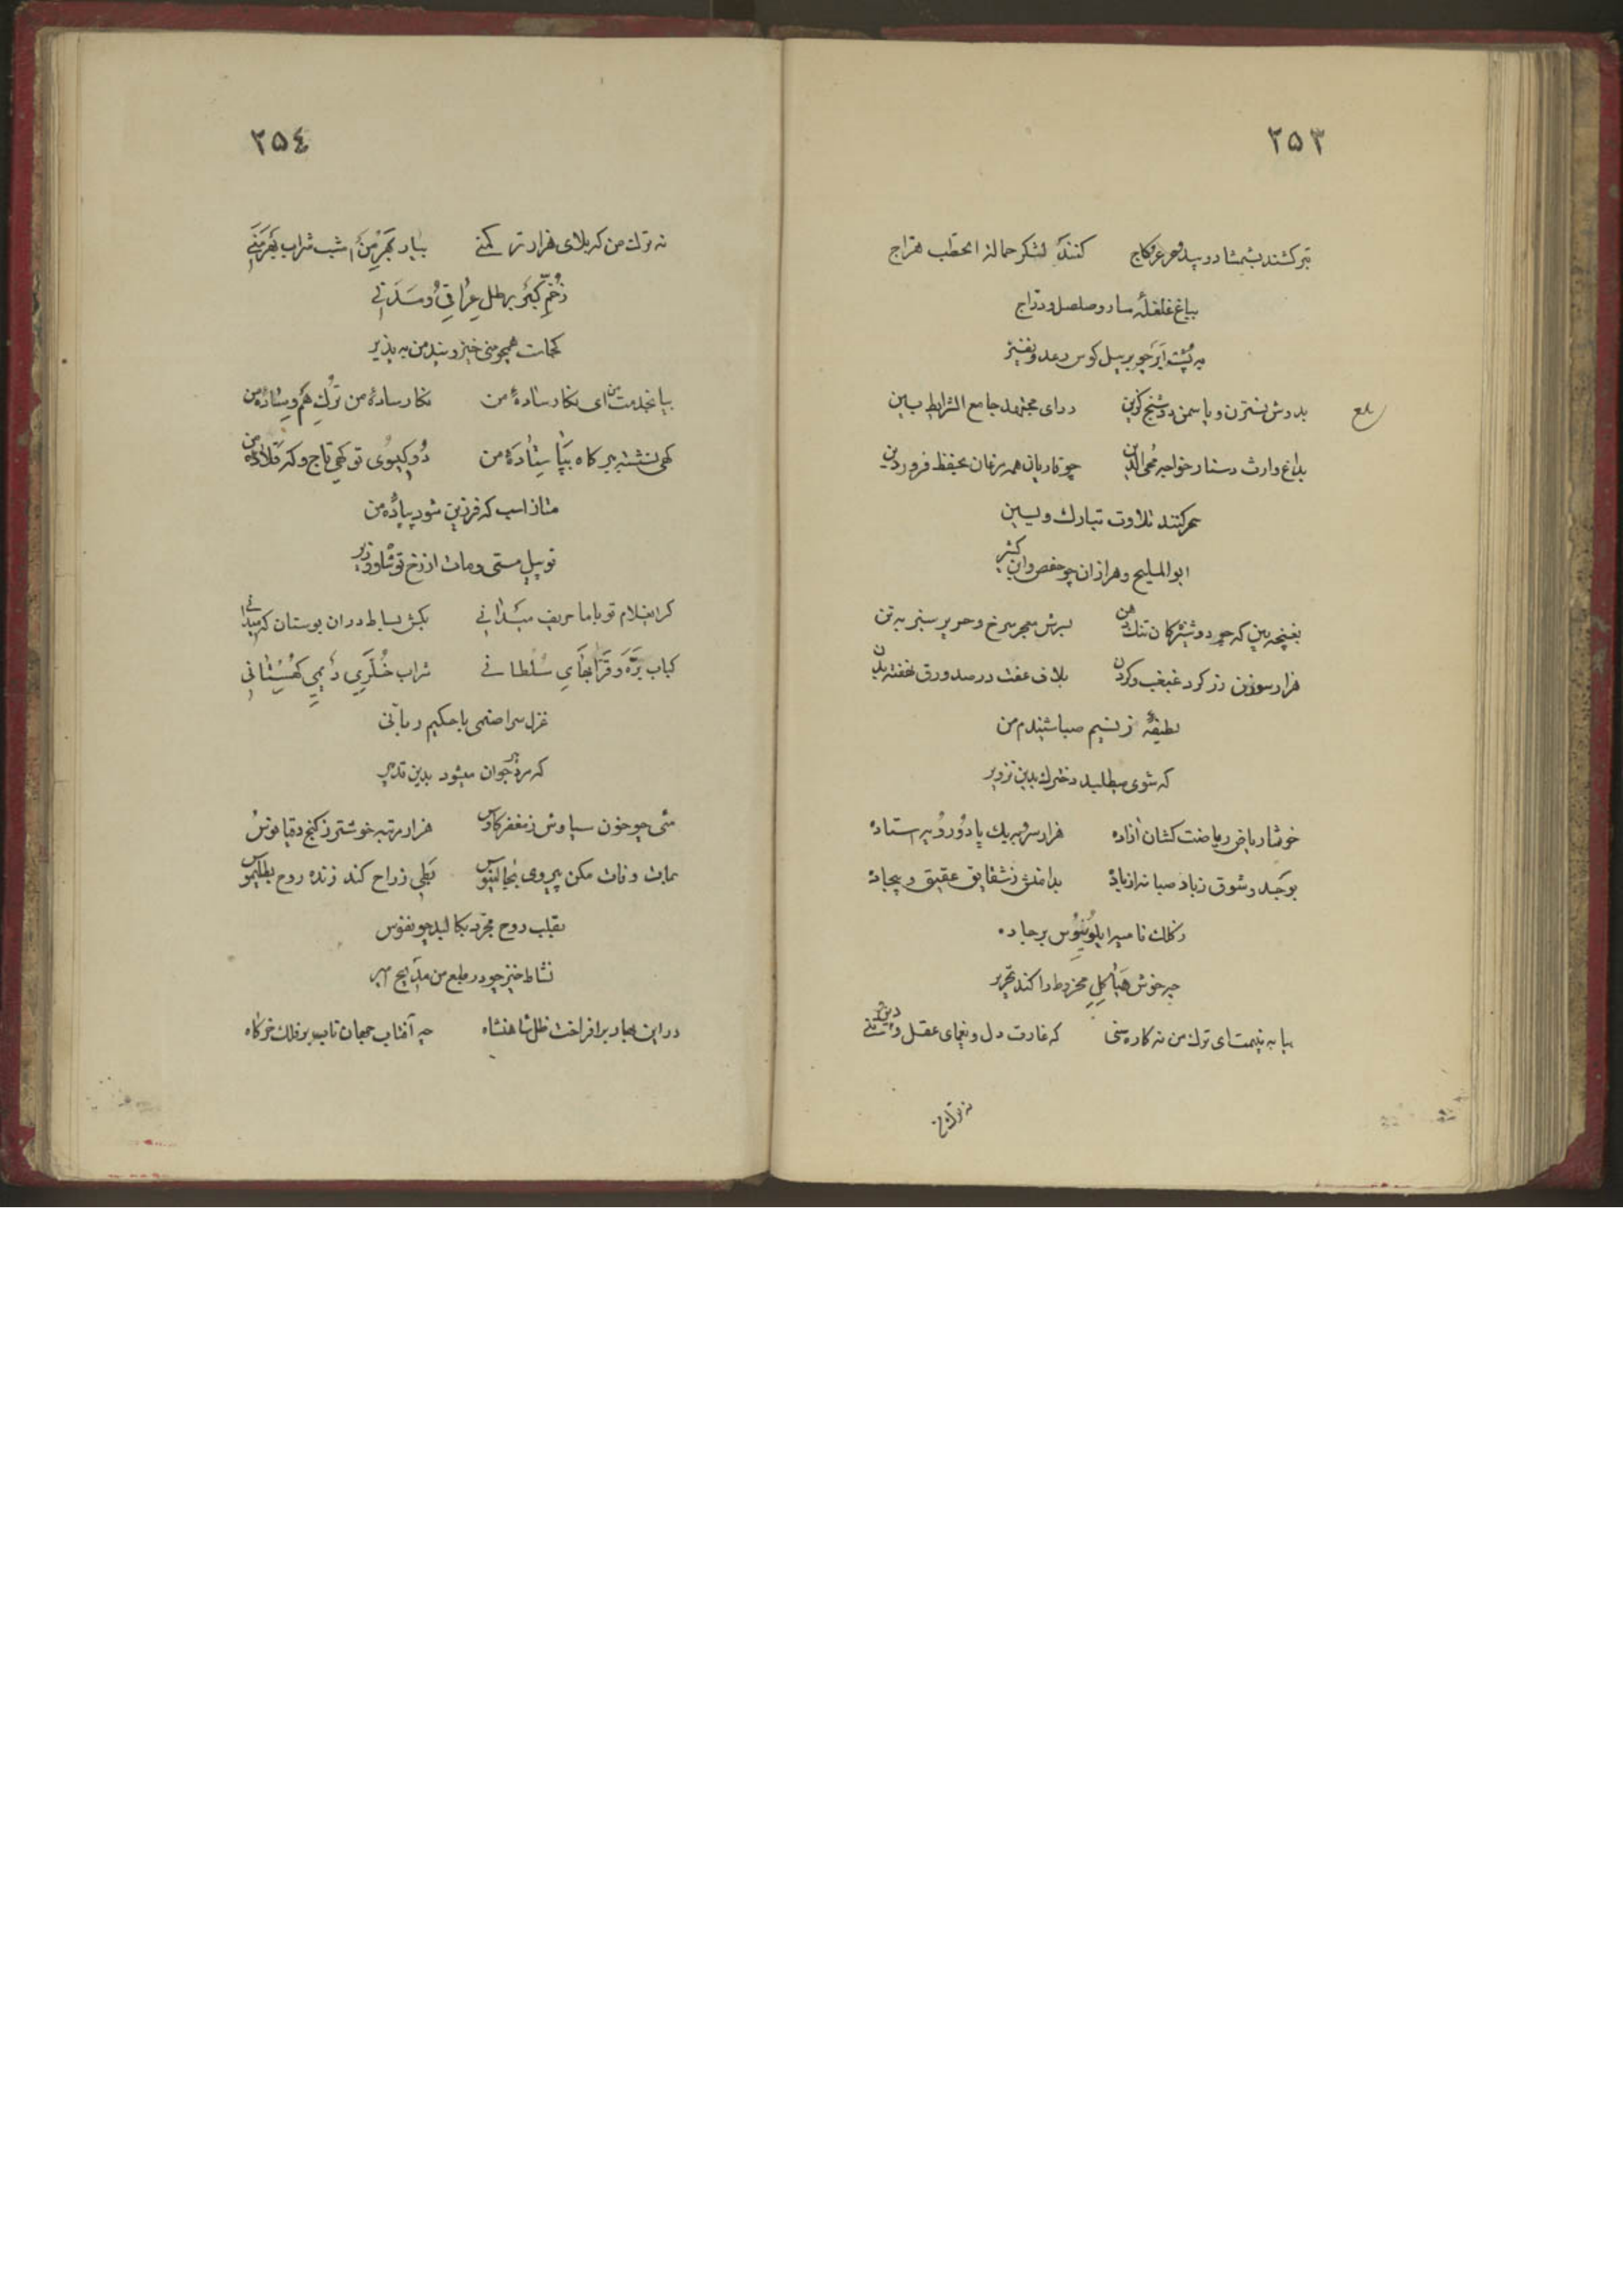 ۲۵۳
تبر کشند بشمشاد و بید و عرعر و کاج کنند لشکر حمالة الحطب هراج
بباغ غلغلهٔ سار و صلصل و دراج
به پشت ابر چو بر پیل کوس رعد و نفیر
بدوش نسترن و یاسمن دو شنج کوین ردای مجتهد جامع الشرایط بین
بباغ وارث دستار خواجه محی الدین چو قاریان همه مرغان بحفظ فروردین
سحر کنند تلاوت تبارك و یسین
ابوالملیح و هزاران چو حفص و ابن کثیر
بغنچه بین که چو دوشیزکان تنك دهن بسرش معجر سرخ و حریر سبز به تن
هزار سوزن زر کرد غبغب و کردن بلاف عفت در صد ورق نهفته بدن
لطیفهٔ ز نسیم صبا شنیدم من
که شوی میطلبد دخترك بدین تزویر
خوشا ریاض ریاضت کشان آزاده هزار سرو بیك پا دو رویه استاده
بوجد و شوق ز باد صبا نه از باده بدامنش ز شقایق عقیق و بیجاده
ز کلك نامیه ابلونیوس بر جاده
چه خوش هیاکل مخروط را کند تحریر
بیا به نیمت ای ترك من نه کاره سنی که غارت دل و یغمای عقل و دین منی
نه ترك من
۲۵٤
نه ترك من که بلای هزار ترکمنی بیار بهر من امشب شراب بهرمنی
ز خم کبر برطل عراقی و سدنی
کجات همچو منی خیز و پند من به پذیر
بیا بخدمت من ای نکار سادهٔ من نکار سادهٔ من ترك هم وسادهٔ من
کهی نشسته بر کاه بپا ستادهٔ من دو کیسوی تو کهی تاج و که قلادهٔ من
متاز اسب که فرزین شود پیادهٔ من
تو پیل مستی و مات از رخ تو شاه و وزیر
کر اینلام تو با ما حریف میدانی بکش بساط در ان بوستان که میدانی
کباب بره و قرابهای سلطانی شراب خلری و می کهستانی
غزل سرا صنمی با حکیم ربانی
که مرد پیر جوان میشود بدین تدبیر
مئی چو خون سیاوش ز مغفر کاوس هزار مرتبه خوشتر ز کنج دقیانوس
نمات و نات مکن پیروی بجالینوس بلی ز راح کند زنده روح بطلمیوس
بقلب روح مجرد بکالبد چو نفوس
نشاط خیز چو در طبع من مدایح میر
در این بهار برافراخت ظل شاهنشاه چه آفتاب جهان تاب بر فلك خرکاه